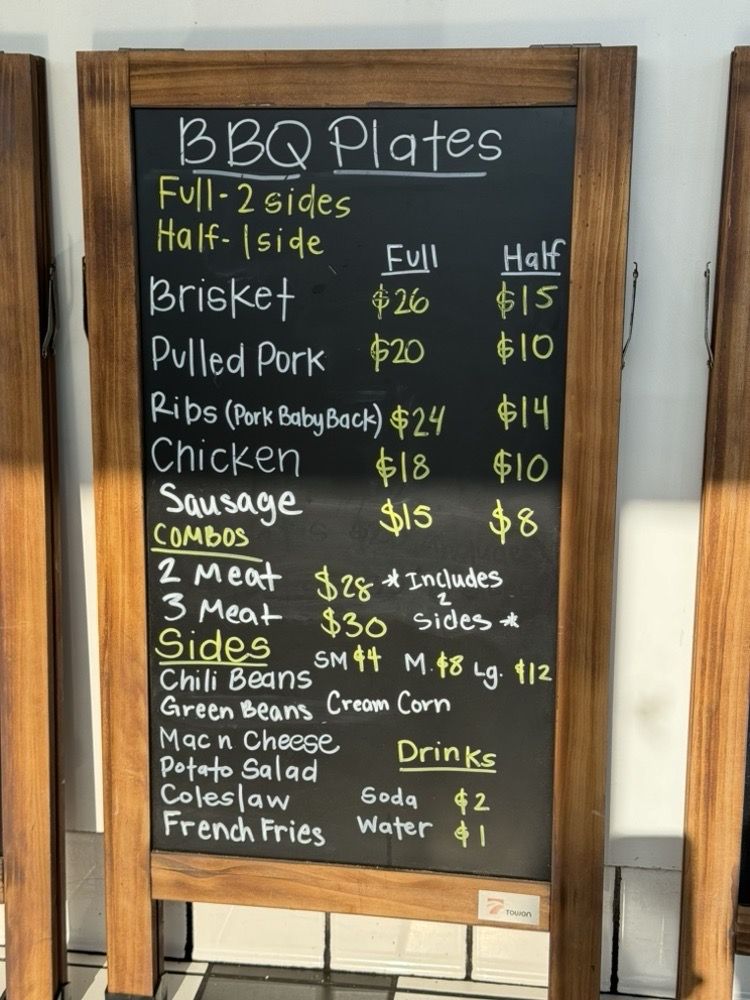 BBQ Plates
Full-2 sides
Half-1 side
Full Half
Brisket $26 $15
Pulled Pork $20 $10
Ribs (Pork Baby Back) $24 $14
Chicken $18 $10
Sausage $15 $8
COMBOS
2 Meat $28 *Includes
2
3 Meat $30 sides *
Sides SM $4 M. $8 Lg. $12
Chili Beans
Green Beans Cream Corn
Mac n Cheese
Drinks
Potato Salad
Coleslaw Soda $2
French Fries Water $1
TOWON